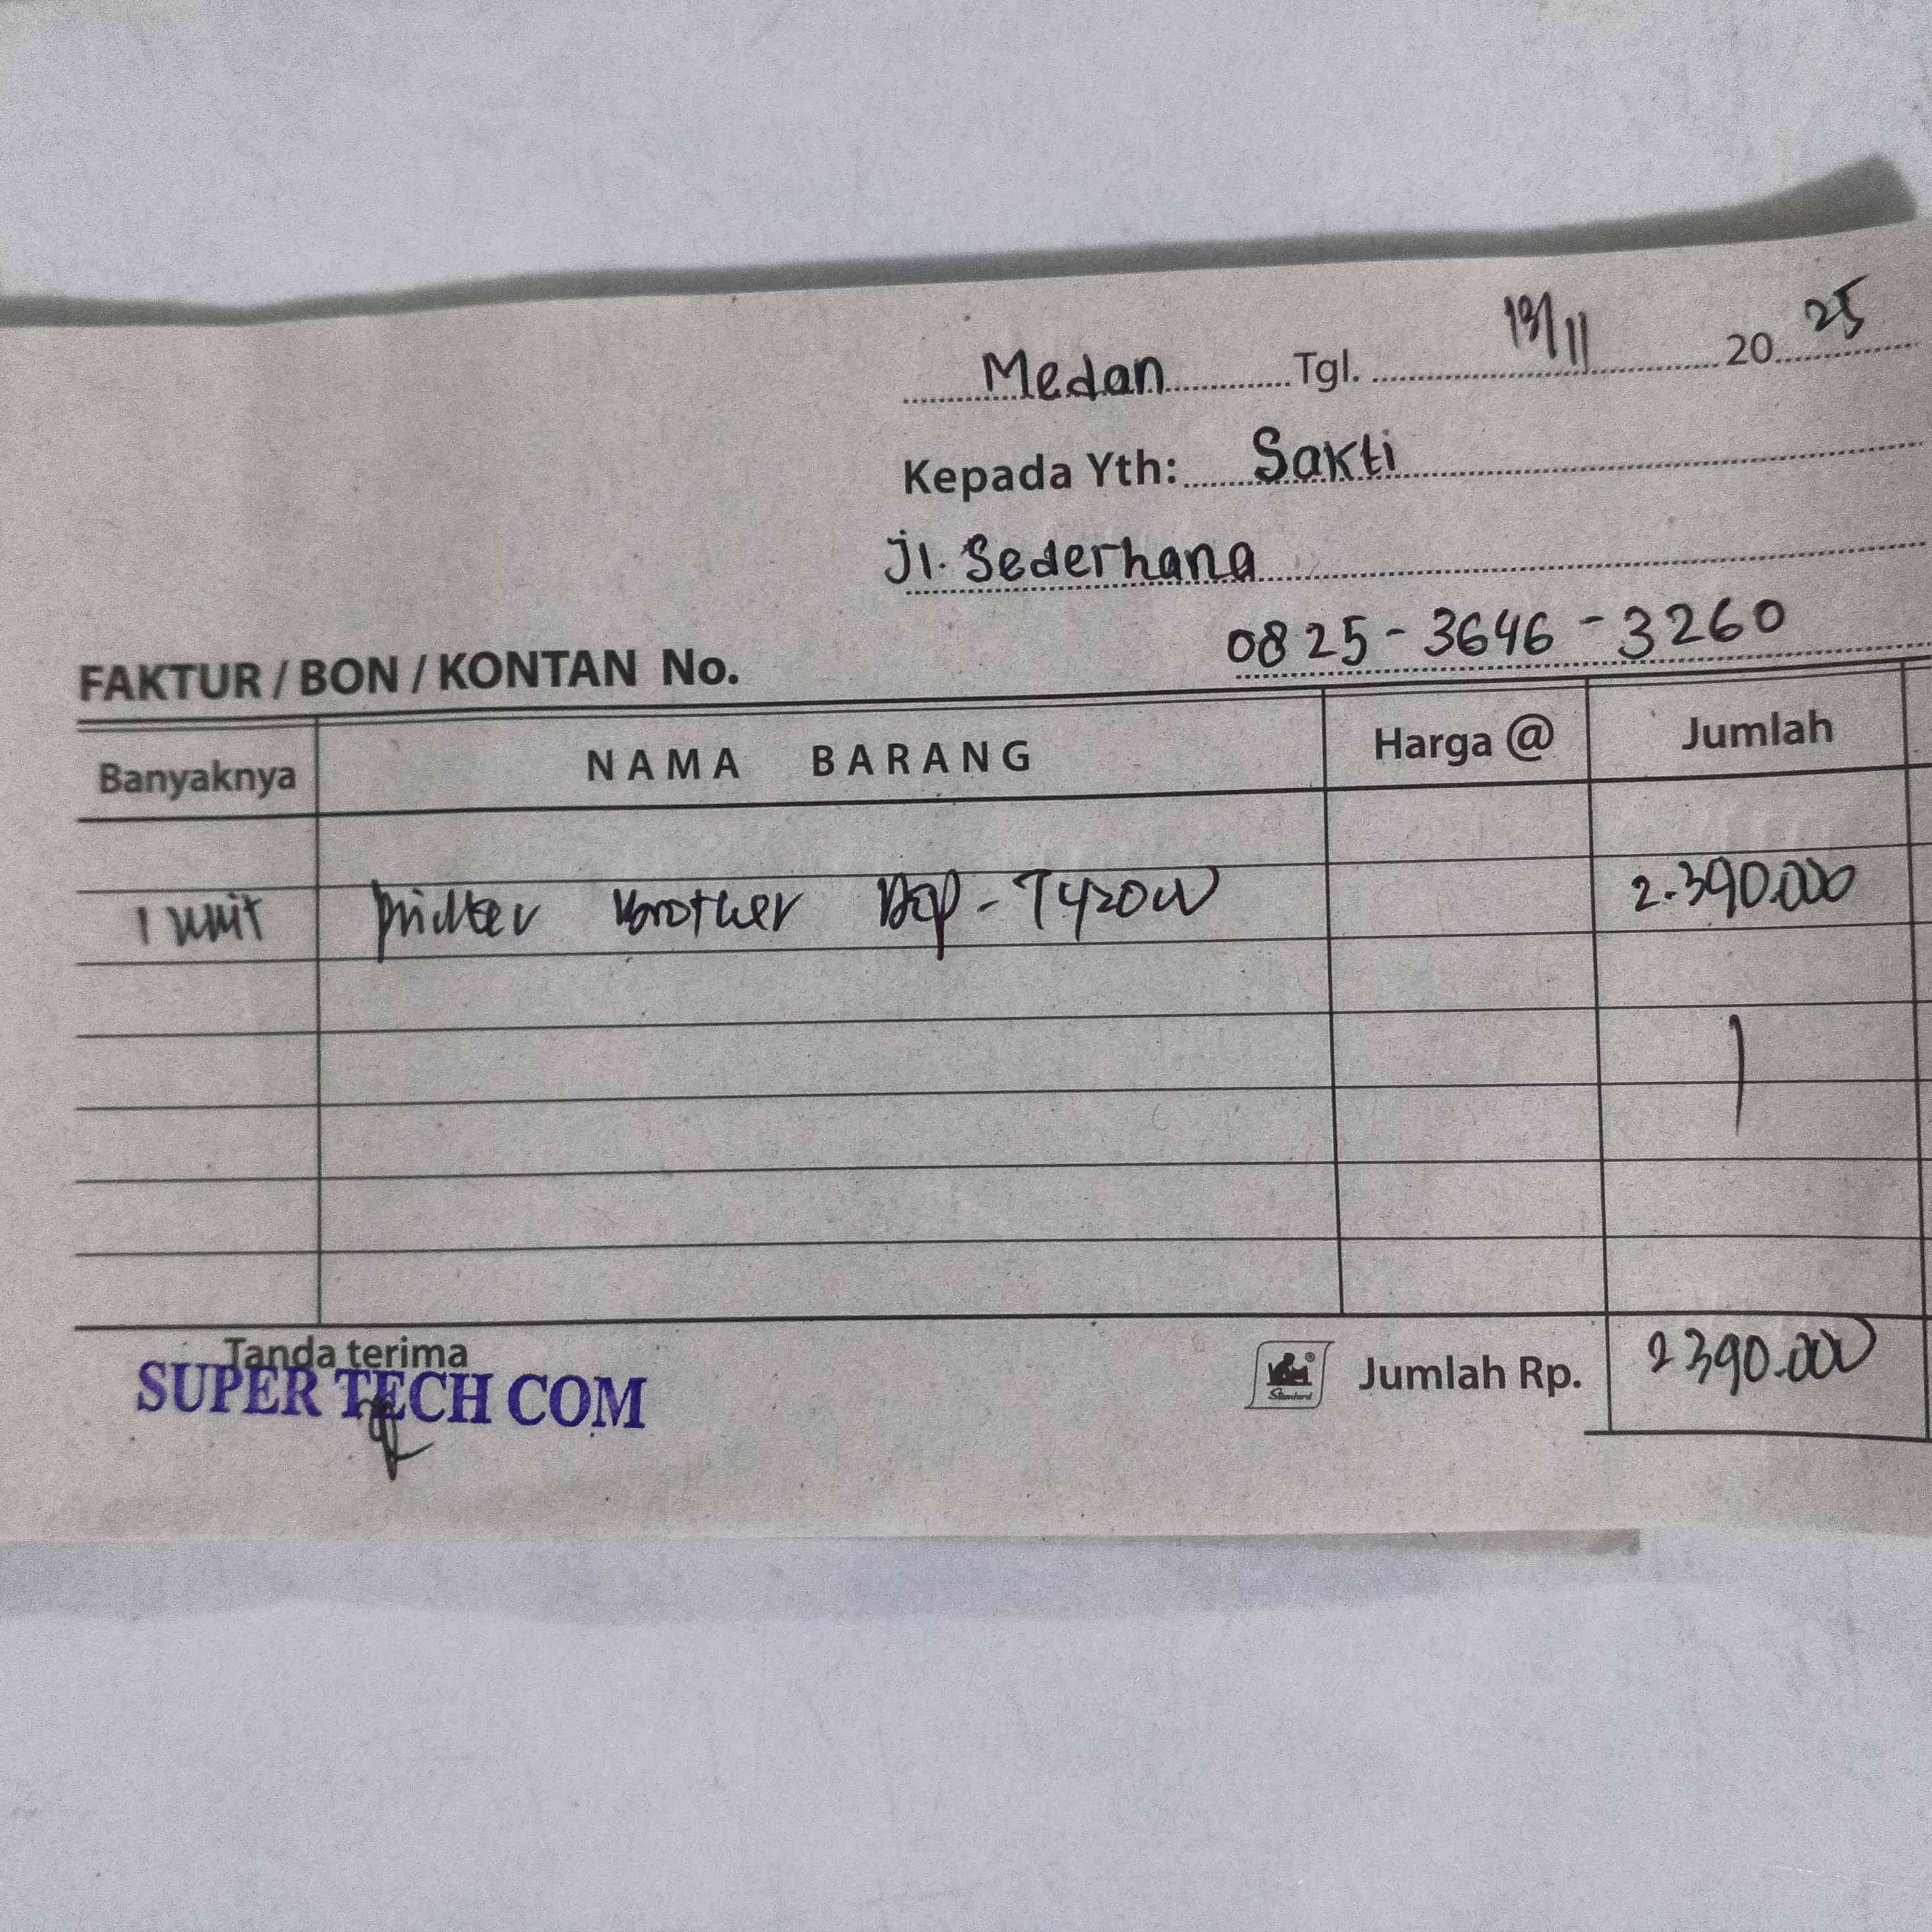 Medan Tgl. 13/11 2025
Kepada Yth: Sakti
Jl. Sederhana
0825-3646-3260
FAKTUR / BON / KONTAN No.
Banyaknya NAMA BARANG Harga @ Jumlah
1 unit printer brother Dcp-T420W 2.390.000
Tanda terima
SUPER TECH COM
Standard
Jumlah Rp. 2390.000